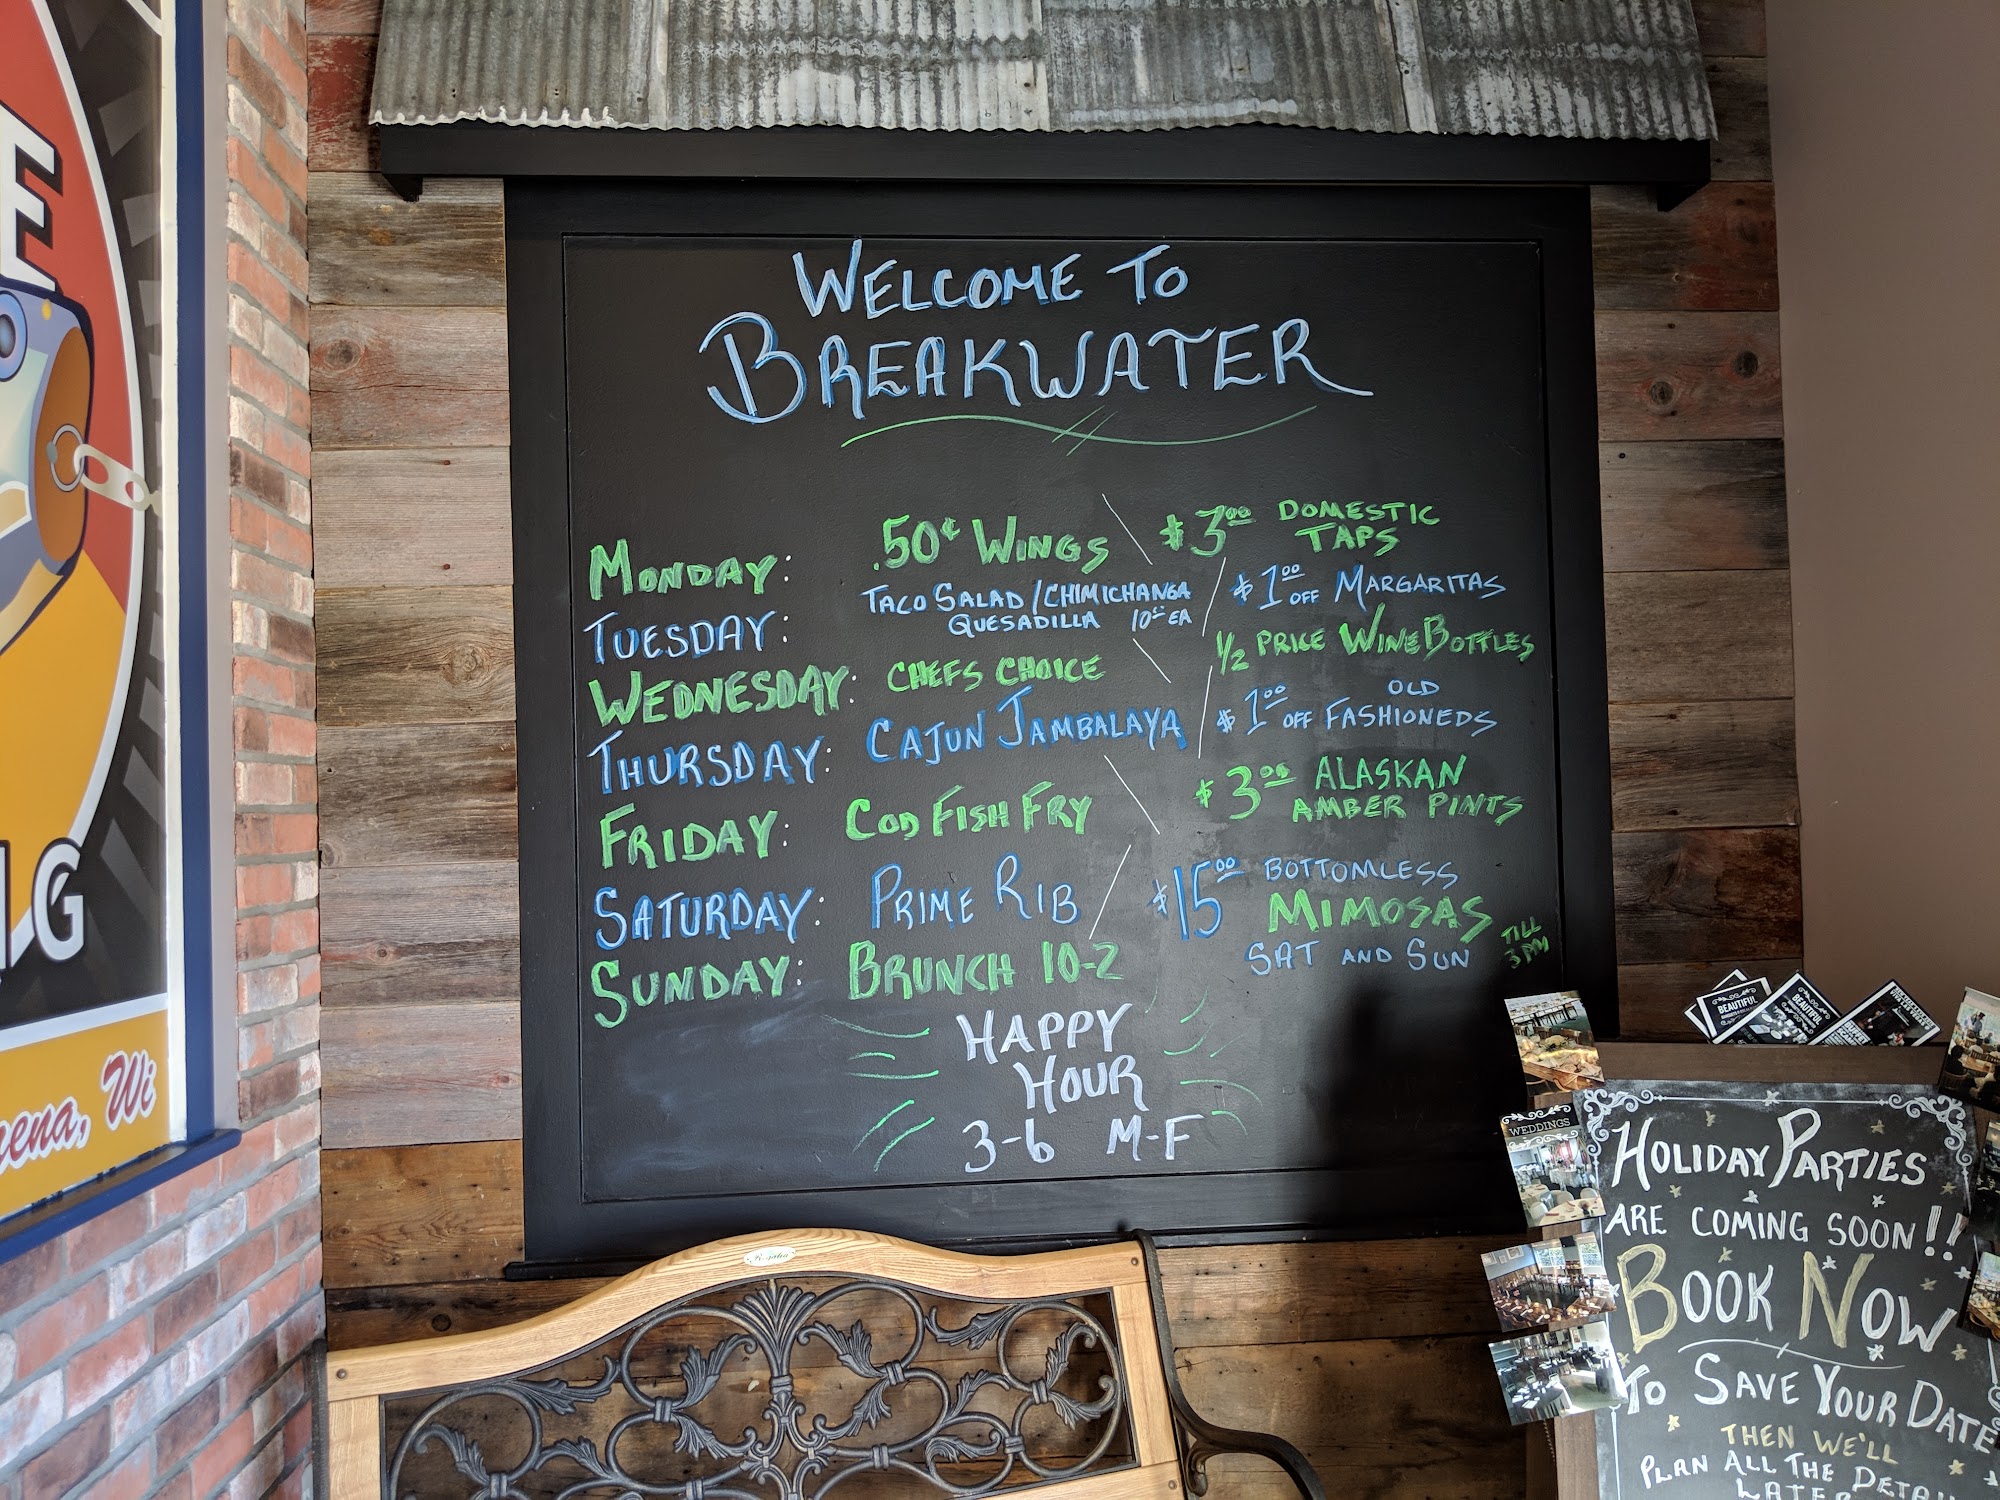 E
G
Wi
WELCOME TO
BREAKWATER
MONDAY: .50¢ WINGS $3.00 DOMESTIC TAPS
TUESDAY: TACO SALAD / CHIMICHANGA QUESADILLA EA $1.00 OFF MARGARITAS
WEDNESDAY: CHEFS CHOICE 1/2 PRICE WINE BOTTLES
THURSDAY: CAJUN JAMBALAYA $1.00 OFF OLD FASHIONEDS
FRIDAY: COD FISH FRY $3.00 ALASKAN AMBER PINTS
SATURDAY: PRIME RIB $15.00 BOTTOMLESS MIMOSAS
SUNDAY: BRUNCH 10-2 SAT AND SUN TILL 3 PM
HAPPY
HOUR
3-6 M-F
BEAUTIFUL
BEAUTIFUL
WEDDINGS
HOLIDAY PARTIES
ARE COMING SOON!!
BOOK NOW
TO SAVE YOUR DATE
THEN WE'LL
PLAN ALL THE